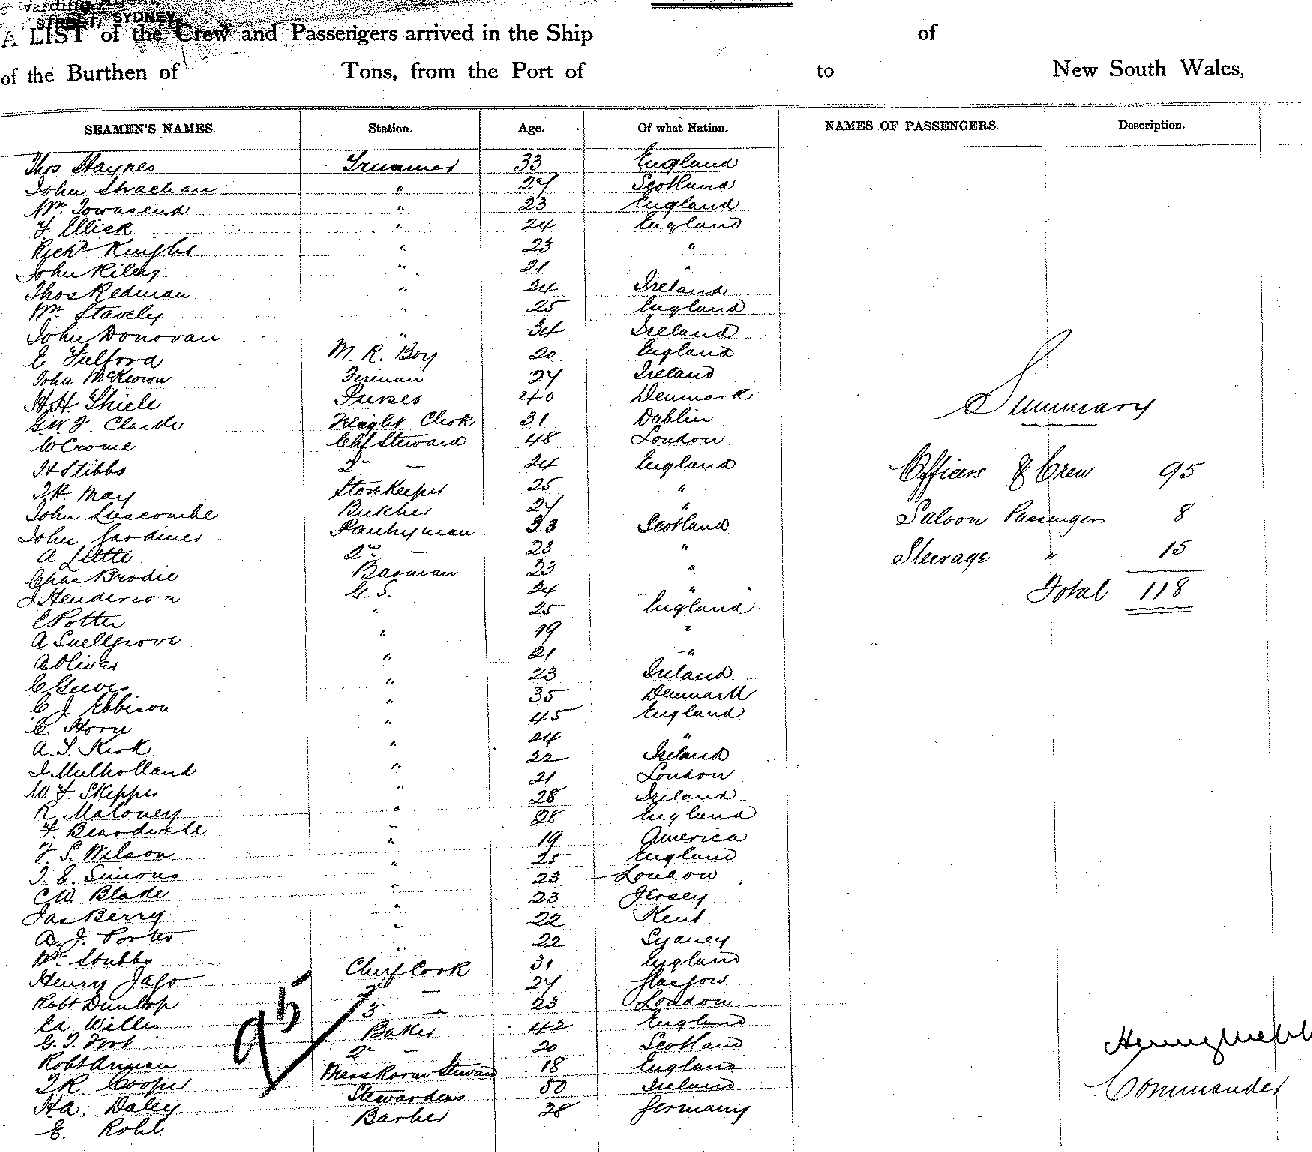 STREET, SYDNEY.
A LIST of the Crew and Passengers arrived in the Ship of
of the Burthen of Tons, from the Port of to New South Wales,
SEAMEN'S NAMES. Station. Age. Of what Nation. NAMES OF PASSENGERS. Description.
Thos Haynes Trimmer 33 England
John Strachan " 27 Scotland
Wm Townsend " 23 England
F Ellick " 24 England
Richd Knight " 23 "
John Riley " 21 "
Thos Redman " 24 Ireland
Wm Stavely " 25 England
John Donovan " 34 Ireland
E Fulford M. R. Boy 20 England
John McKeown Fireman 27 Ireland
H. H. Thiele Purser 40 Denmark
G. W. F. Clarde Freight Clerk 31 Dublin
W Crome Chf Steward 48 London
H Stibbs 2 — 24 England
T H May Storekeeper 25 "
John Luscombe Butcher 27 "
John Gardiner Pantryman 33 Scotland
A Leitte 2nd — 23 "
Chas Brodie Barman 23 "
J Henderson G. S. 24 "
E Potter " 25 England
A Snellgrove " 19 "
A Oliver " 21 "
C Greeves " 23 Ireland
C J Ebbison " 35 Denmark
C. Horn " 45 England
A. T. Kirk " 24 "
J. Mulholland " 22 Ireland
W F Skipper " 21 London
R. Maloney " 28 Ireland
F. Beardwell " 28 England
F. S. Wilson " 19 America
T. E. Simons " 25 England
C W. Blade " 23 London
Jas Berry " 23 Jersey
A. J. Porter " 22 Kent
Wm Stubbs " 22 Sydney
Henry Jago Chief Cook 31 England
Robt Dunlop 2 — 27 Glasgow
Ed Willis 3 — 23 London
G. T. Foot Baker 42 England
Robt Annan 2 — 20 Scotland
T. R. Cooper Messroom Steward 18 England
H. A. Daley Stewardess 50 Ireland
E. Robl Barber 28 Germany
95
Summary
Officers & Crew 95
Saloon Passengers 8
Steerage " 15
Total 118
Henry Webb
Commander